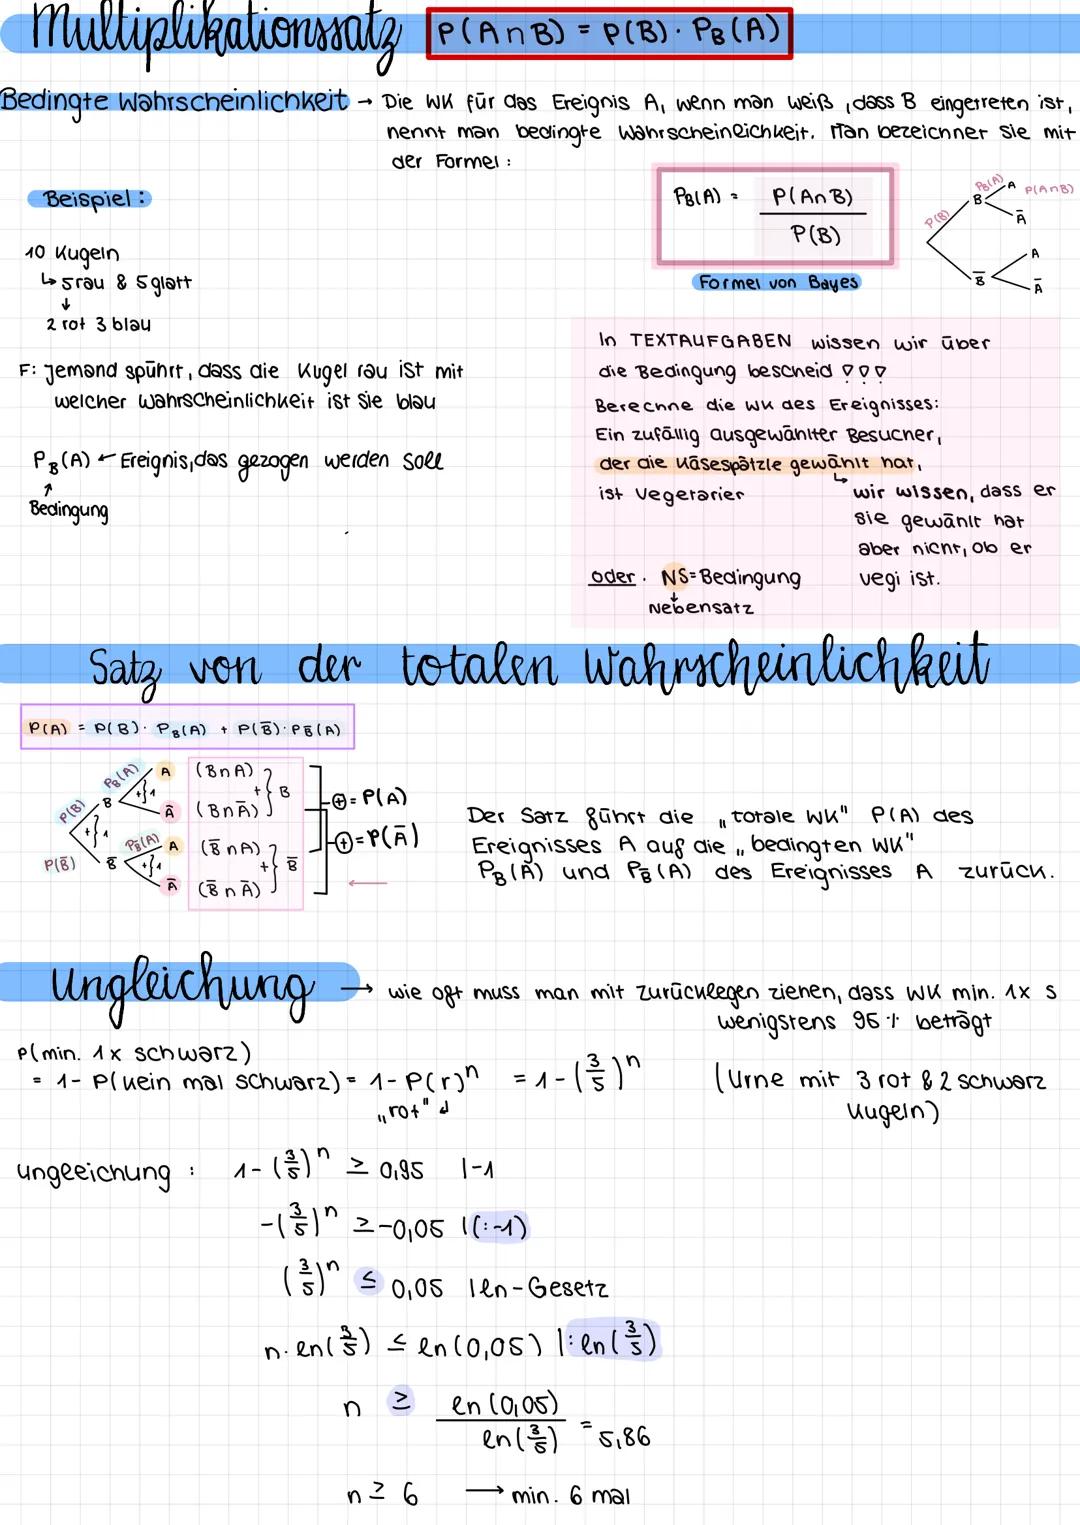 Multiplikationssatz P(A∩B) = P(B) · P_B(A)
Bedingte Wahrscheinlichkeit → Die WK für das Ereignis A, wenn man weiß, dass B eingetreten ist,
nennt man bedingte Wahrscheinlichkeit. Man bezeichnet sie mit
der Formel:
P_B(A) = P(A∩B) / P(B)
Formel von Bayes
P(B) P_B(A) B A P(A∩B)
Ā
B̄ A
Ā
Beispiel:
10 Kugeln
↳ 5 rau & 5 glatt
↓
2 rot 3 blau
F: Jemand spührt, dass die Kugel rau ist mit
welcher Wahrscheinlichkeit ist sie blau
P_B(A) ← Ereignis, das gezogen werden soll
↑
Bedingung
In TEXTAUFGABEN wissen wir über
die Bedingung bescheid !!!
Berechne die WK des Ereignisses:
Ein zufällig ausgewählter Besucher,
der die Käsespätzle gewählt hat,
ist Vegetarier
↳ wir wissen, dass er
sie gewählt hat
aber nicht, ob er
vegi ist.
oder. NS=Bedingung
↓
Nebensatz
Satz von der totalen Wahrscheinlichkeit
P(A) = P(B) · P_B(A) + P(B̄) · P_B̄(A)
P(B) B P_B(A) A (B∩A)
+} 1 +} 1 +} B ⊕ = P(A)
Ā (B∩Ā)
P(B̄) B̄ P_B̄(A) A (B̄∩A) ⊕ = P(Ā)
+} 1 +} B̄
Ā (B̄∩Ā) ←
Der Satz führt die „totale WK" P(A) des
Ereignisses A auf die „bedingten WK"
P_B(A) und P_B̄(A) des Ereignisses A zurück.
Ungleichung → wie oft muss man mit zurücklegen ziehen, dass WK min. 1x s
wenigstens 95 % beträgt
P(min. 1x schwarz)
= 1- P(kein mal schwarz) = 1- P(r)ⁿ = 1-(3/5)ⁿ
„rot"
(Urne mit 3 rot & 2 schwarz
Kugeln)
ungleichung : 1-(3/5)ⁿ ≥ 0,95 |-1
-(3/5)ⁿ ≥ -0,05 |(:-1)
(3/5)ⁿ ≤ 0,05 | ln-Gesetz
n · ln(3/5) ≤ ln(0,05) |: ln(3/5)
n ≥ ln(0,05) / ln(3/5) = 5,86
n ≥ 6 → min. 6 mal